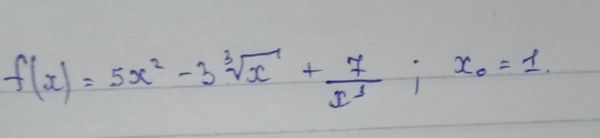 f(x) = 5x² - 3∛x + 7/x³ ; x₀ = 1.